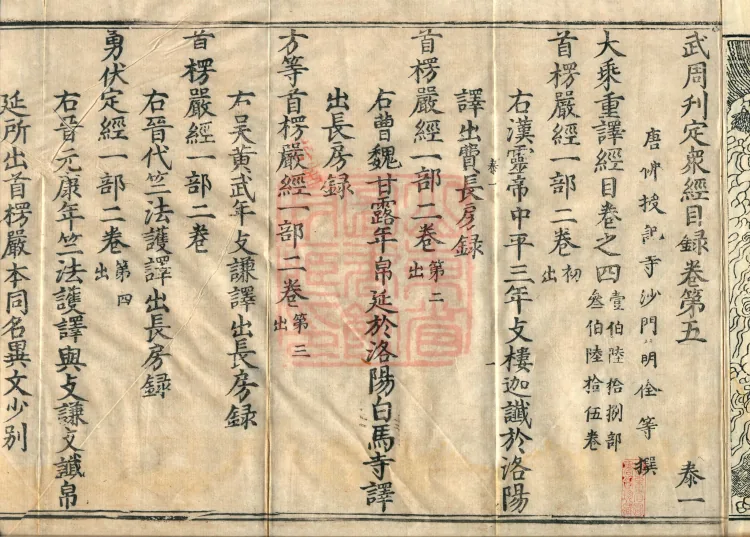 武周刊定衆經目録卷第五 泰一
唐佛授記寺沙門明佺等撰
大乘重譯經目卷之四 壹伯陸拾捌部 叁伯陸拾伍卷
首楞嚴經一部二卷 初出
右漢靈帝中平三年支樓迦讖於洛陽
譯出費長房録
泰一
首楞嚴經一部二卷 第二出
右曹魏甘露年帛延於洛陽白馬寺譯
出長房録
方等首楞嚴經一部二卷 第三出
右吴黄武年支謙譯出長房録
首楞嚴經一部二卷
右晉代竺法護譯出長房録
勇伏定經一部二卷 第四出
右晉元康年竺法護譯與支謙支讖帛
延所出首楞嚴本同名異文少别